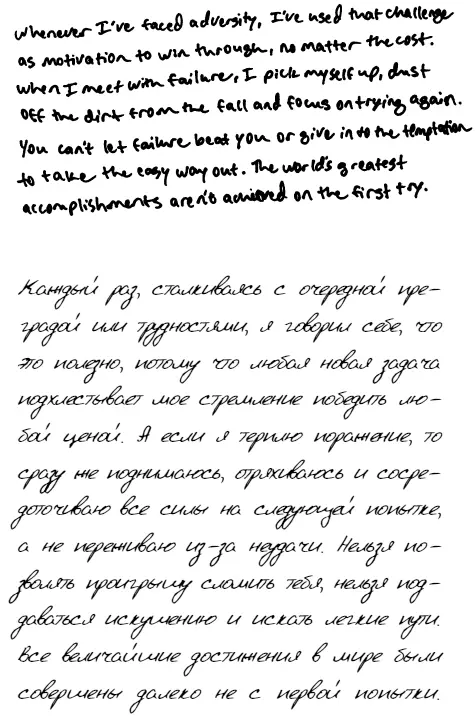 Whenever I've faced adversity, I've used that challenge
as motivation to win through, no matter the cost.
When I meet with failure, I pick myself up, dust
off the dirt from the fall and focus on trying again.
You can't let failure beat you or give in to the temptation
to take the easy way out. The world's greatest
accomplishments aren't achieved on the first try.
Каждый раз, сталкиваясь с очередной пре-
градой или трудностями, я говорил себе, что
это полезно, потому что любая новая задача
подхлестывает мое стремление победить лю-
бой ценой. А если я терплю поражение, то
сразу же поднимаюсь, отряхиваюсь и сосре-
доточиваю все силы на следующей попытке,
а не переживаю из-за неудачи. Нельзя по-
зволять проигрышу сломить тебя, нельзя под-
даваться искушению и искать легкие пути.
Все величайшие достижения в мире были
совершены далеко не с первой попытки.